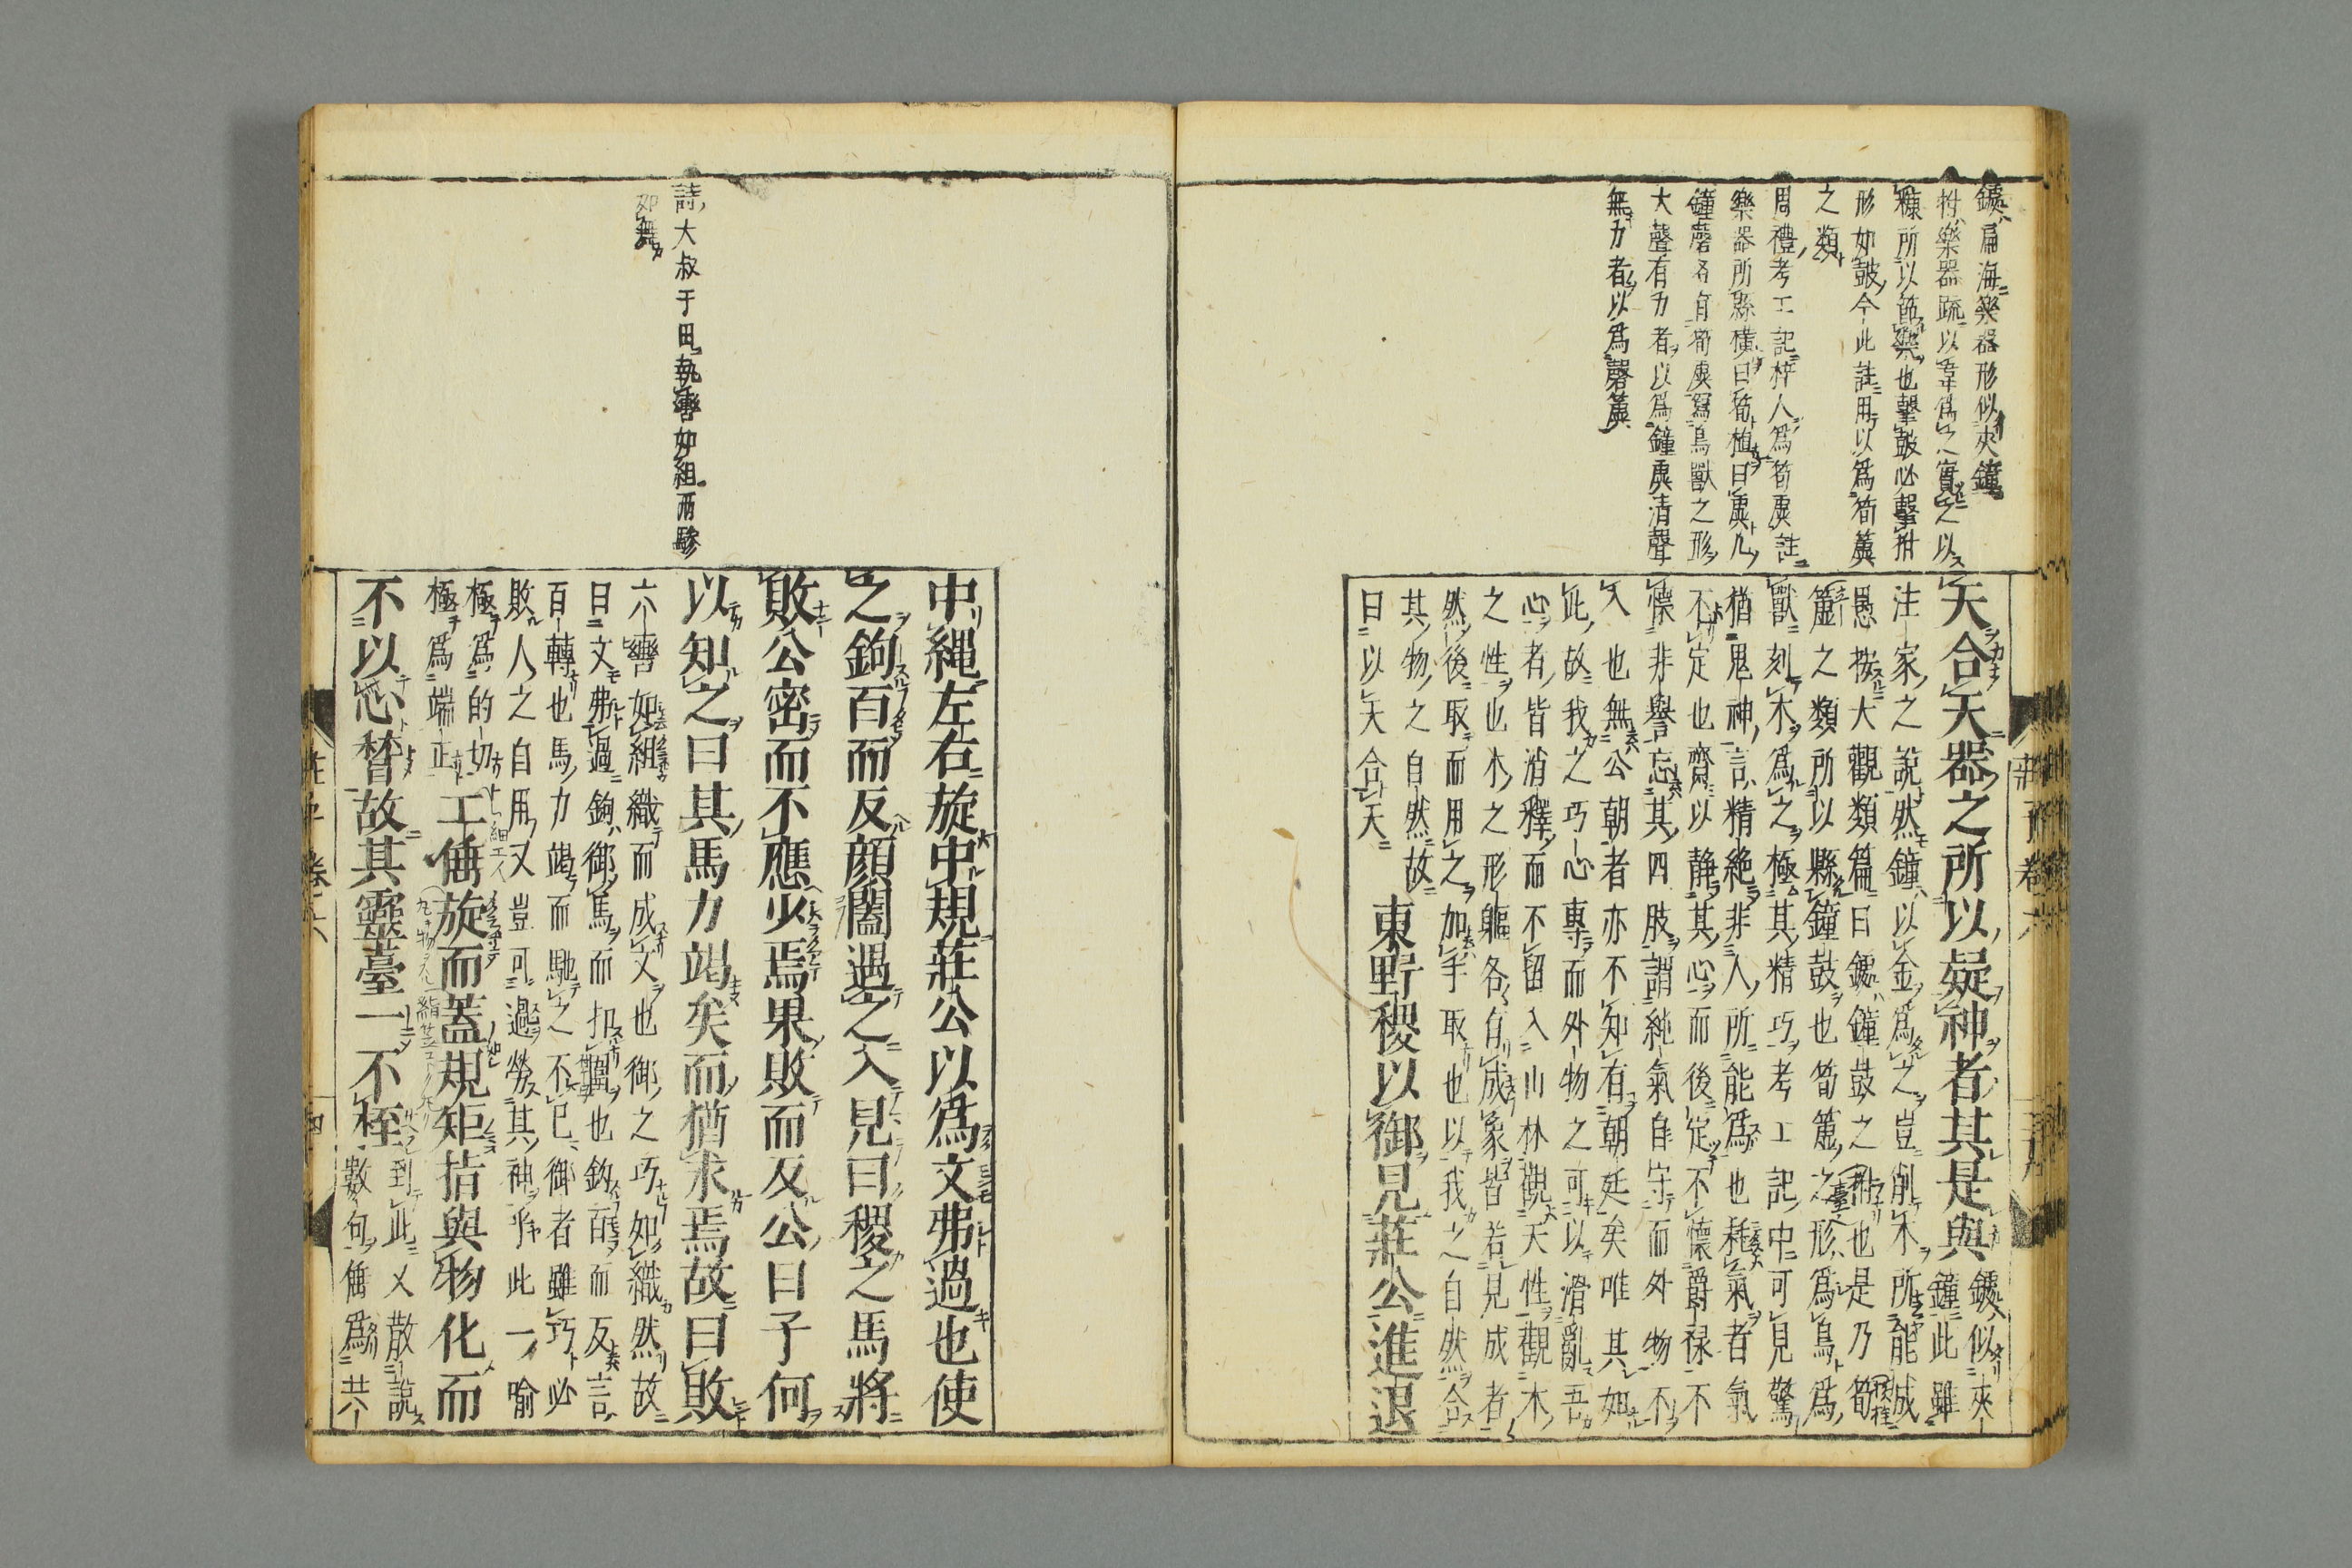 鐻扁海樂器形似夾鐘
拊樂器疏以韋爲之實之以
糠所以節樂也擊鼓必擊拊
形如鼓今此註用以爲筍簴
之類
周禮考工記梓人爲筍虡註
樂器所縣橫曰筍植曰虡凡
鐘磬各有筍虡寫鳥獸之形
大聲有力者以爲鐘虡清聲
無力者以爲磬簴
天合天器之所以疑神者其是與鐻似夾
鐘此雖
注家之說然鐘以金爲之豈削木所能成
愚按大觀類篇曰鐻鐘鼓之柎也是乃筍
簴之類所以縣鐘鼓也筍簴之形爲鳥爲
獸刻木爲之極其精巧考工記中可見驚
猶鬼神言精絶非人所能爲也耗氣者氣
不定也齊以静其心而後定不懷爵祿不
懷非譽忘其四肢謂純氣自守而外物不
入也無公朝者亦不知有朝廷矣唯其如
此故我之巧心專而外物之可以滑亂吾
心者皆消釋而不留入山林觀天性觀木
之性也木之形軀各有成象皆若見成者
然後取而用之加手取也以我之自然合
其物之自然故
曰以天合天
東野稷以御見莊公進退
莊子卷六
中繩左右旋中規莊公以爲文弗過也使
之鉤百而反顔闔遇之入見曰稷之馬將
敗公密而不應少焉果敗而反公曰子何
以知之曰其馬力竭矣而猶求焉故曰敗
詩大叔于田執轡如組兩驂
如舞
六轡如組織而成文也御之巧如織然故
曰文弗過鉤御馬而扣圍也鉤百而反言
百轉也馬力竭而馳之不已御者雖巧必
敗人之自用又豈可過勞其神乎此一喻
極爲的切
極爲端正
工倕旋而蓋規矩指與物化而
不以心稽故其靈臺一不桎到此又散說
數句倕爲共
莊子卷六
四